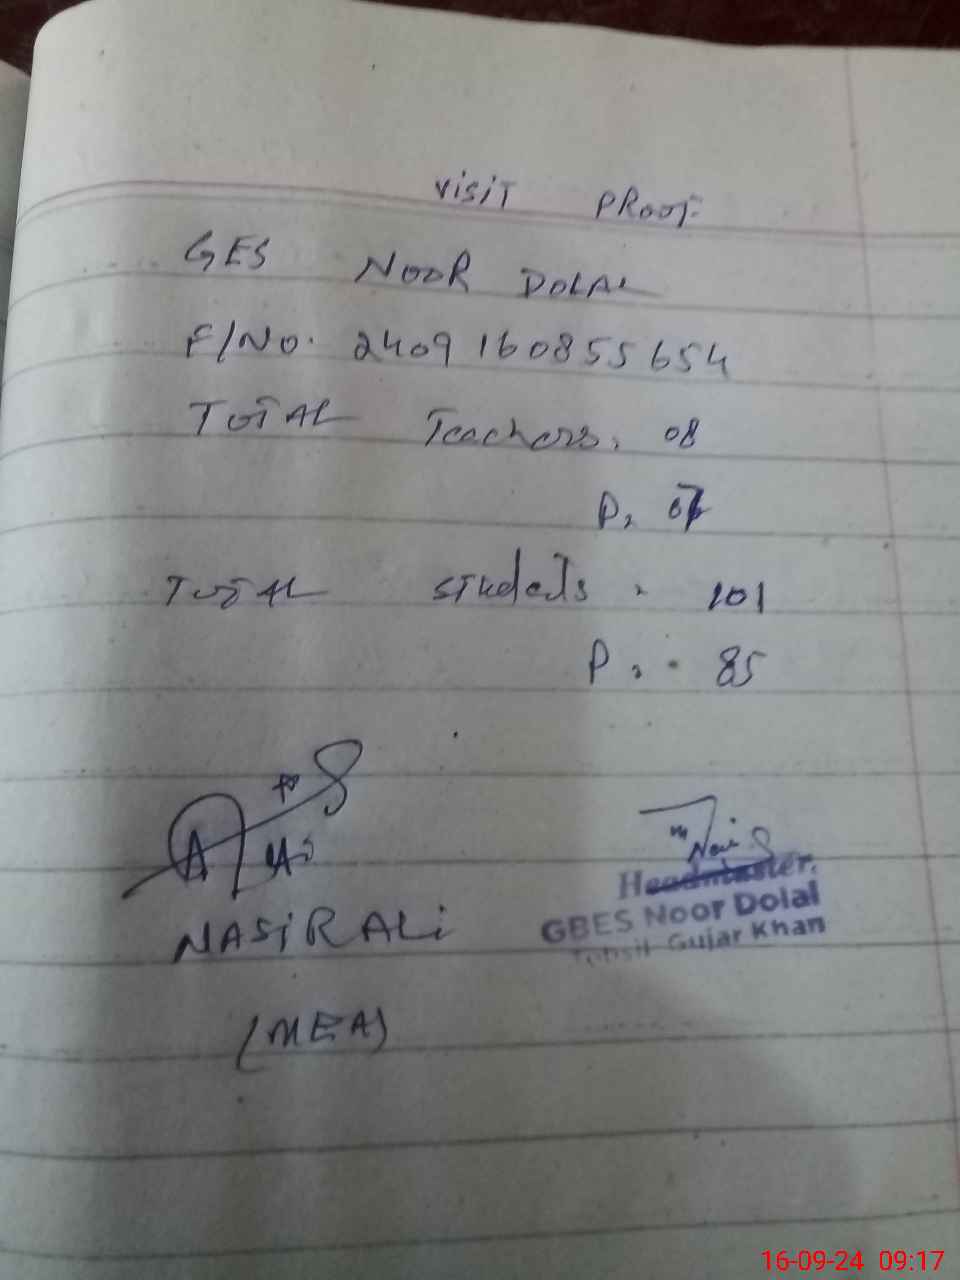 VISIT PROOF
GES NOOR DOLAL
F/NO. 2409160855654
TOTAL Teachers, 08
P, 07
TOTAL students , 101
P, 85
NASIR ALi
(MEA)
Headmaster,
GBES Noor Dolal
Tehsil Gujar Khan
16-09-24 09:17